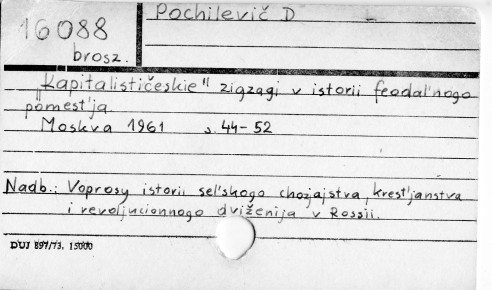 16088
brosz.
Pochilevič D L.
„Kapitalističeskie" zigzagi v istorii feodal'nogo
pomest'ja.
Moskva 1961 s. 44-52
Nadb.: Voprosy istorii sel'skogo chozjajstva, krest'janstva
i revoljucionnogo dviženija v Rossii.
DUJ 897/73. 15000